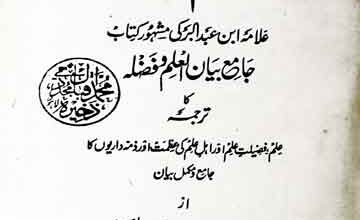 علامہ ابن عبدالبرؒ کی مشہور کتاب
جامع بیان العلم و فضلہ
کا
ترجمہ
علم، فضیلتِ علم اور اہلِ علم کی عظمت اور ذمہ داریوں کا
جامع و مکمل بیان
از